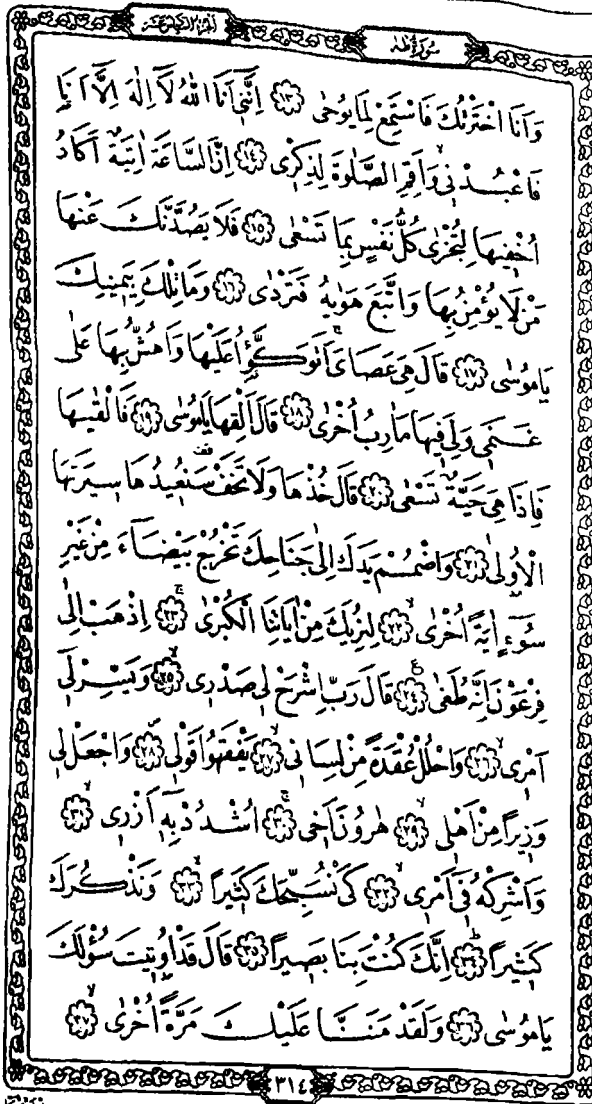 سُورَةُ طٰهٰ
اَلْجُزْءُ السَّادِسَ عَشَرَ
وَاَنَا اخْتَرْتُكَ فَاسْتَمِعْ لِمَا يُوحٰى ﴿١٣﴾ اِنَّنٖى اَنَا اللّٰهُ لَٓا اِلٰهَ اِلَّٓا اَنَا۬
فَاعْبُدْنٖىۙ وَاَقِمِ الصَّلٰوةَ لِذِكْرٖى ﴿١٤﴾ اِنَّ السَّاعَةَ اٰتِيَةٌ اَكَادُ
اُخْفٖيهَا لِتُجْزٰى كُلُّ نَفْسٍ بِمَا تَسْعٰى ﴿١٥﴾ فَلَا يَصُدَّنَّكَ عَنْهَا
مَنْ لَا يُؤْمِنُ بِهَا وَاتَّبَعَ هَوٰيهُ فَتَرْدٰى ﴿١٦﴾ وَمَا تِلْكَ بِيَمٖينِكَ
يَا مُوسٰى ﴿١٧﴾ قَالَ هِىَ عَصَاىَۚ اَتَوَكَّؤُ۬ا عَلَيْهَا وَاَهُشُّ بِهَا عَلٰى
غَنَمٖى وَلِىَ فٖيهَا مَاٰرِبُ اُخْرٰى ﴿١٨﴾ قَالَ اَلْقِهَا يَا مُوسٰى ﴿١٩﴾ فَاَلْقٰيهَا
فَاِذَا هِىَ حَيَّةٌ تَسْعٰى ﴿٢٠﴾ قَالَ خُذْهَا وَلَا تَخَفْ۠ سَنُعٖيدُهَا سٖيرَتَهَا
الْاُو۫لٰى ﴿٢١﴾ وَاضْمُمْ يَدَكَ اِلٰى جَنَاحِكَ تَخْرُجْ بَيْضَٓاءَ مِنْ غَيْرِ
سُٓوءٍ اٰيَةً اُخْرٰىۙ ﴿٢٢﴾ لِنُرِيَكَ مِنْ اٰيَاتِنَا الْكُبْرٰىۚ ﴿٢٣﴾ اِذْهَبْ اِلٰى
فِرْعَوْنَ اِنَّهُ طَغٰى ﴿٢٤﴾ قَالَ رَبِّ اشْرَحْ لٖى صَدْرٖىۙ ﴿٢٥﴾ وَيَسِّرْ لٖٓى
اَمْرٖىۙ ﴿٢٦﴾ وَاحْلُلْ عُقْدَةً مِنْ لِسَانٖىۙ ﴿٢٧﴾ يَفْقَهُوا قَوْلٖى ﴿٢٨﴾ وَاجْعَلْ لٖى
وَزٖيراً مِنْ اَهْلٖىۙ ﴿٢٩﴾ هٰرُونَ اَخٖىۚ ﴿٣٠﴾ اُشْدُدْ بِهٖٓ اَزْرٖىۙ ﴿٣١﴾
وَاَشْرِكْهُ فٖٓى اَمْرٖىۙ ﴿٣٢﴾ كَىْ نُسَبِّحَكَ كَثٖيراًۙ ﴿٣٣﴾ وَنَذْكُرَكَ
كَثٖيراًۜ ﴿٣٤﴾ اِنَّكَ كُنْتَ بِنَا بَصٖيراً ﴿٣٥﴾ قَالَ قَدْ اُو۫تٖيتَ سُؤْلَكَ
يَا مُوسٰى ﴿٣٦﴾ وَلَقَدْ مَنَنَّا عَلَيْكَ مَرَّةً اُخْرٰىۙ ﴿٣٧﴾
٣١٤